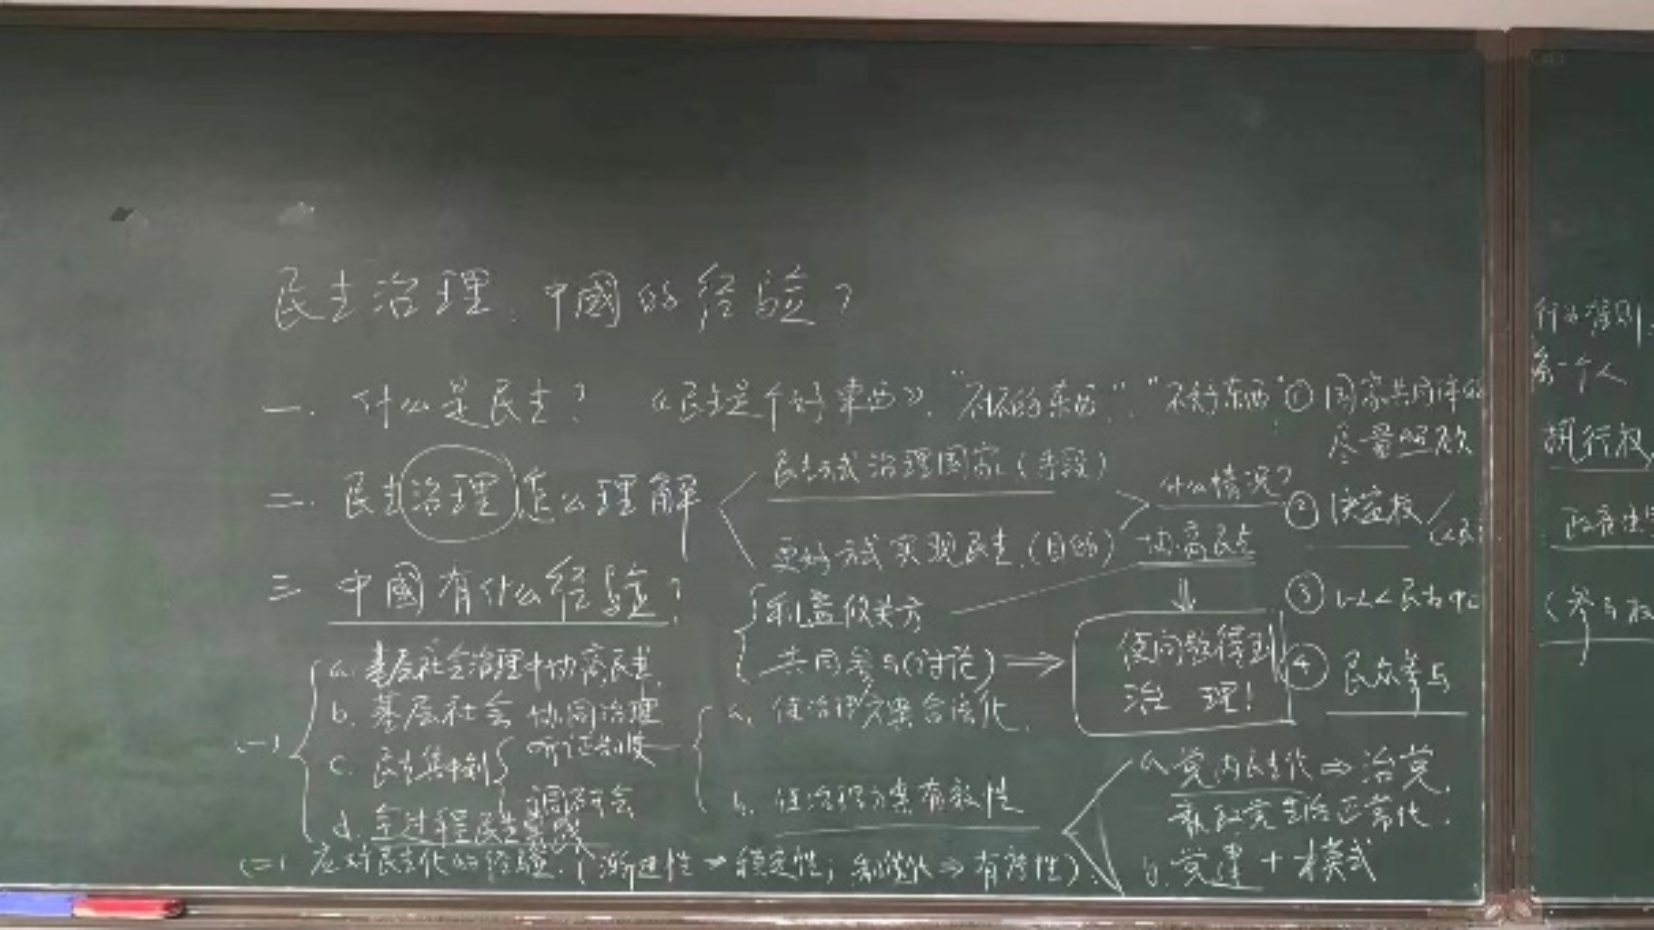 民主治理.中國的经验?
一. 什么是民主? 《民主是个好東西》. "不坏的东西". "不好东西" ① 国家共同体的
尽量
二. 民主治理怎么理解
民主方式治理国家(手段)
更好方式实现民主.(目的)
什么情况?
协商民主
② 决定权
三 中國有什么经验?
利益攸关方
共同参与(讨论) ⇒
使问题得到
治 理!
③ 以人民为中心
④ 民众参与
(一)
a. 基层社会治理中协商民主.
b. 基层社会协同治理
c. 民主集中制 听证制度
调研会
d. 全过程民主
a. 使治理方案合法化.
b. 使治理方案有效性
(二) 应对民主化的经验.(渐进性⇒稳定性; 制度化⇒有序性).
a. 党内民主化⇒治党.
党生活正常化.
b. 党建+模式
行为准则
第一个人
执行权
(参与权